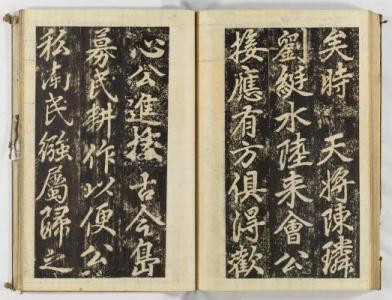 矣時　天將陳璘
劉綎水陸来會公
接應有方俱得歡
心公進據古今島
募民耕作以便公
私南民繈屬歸之